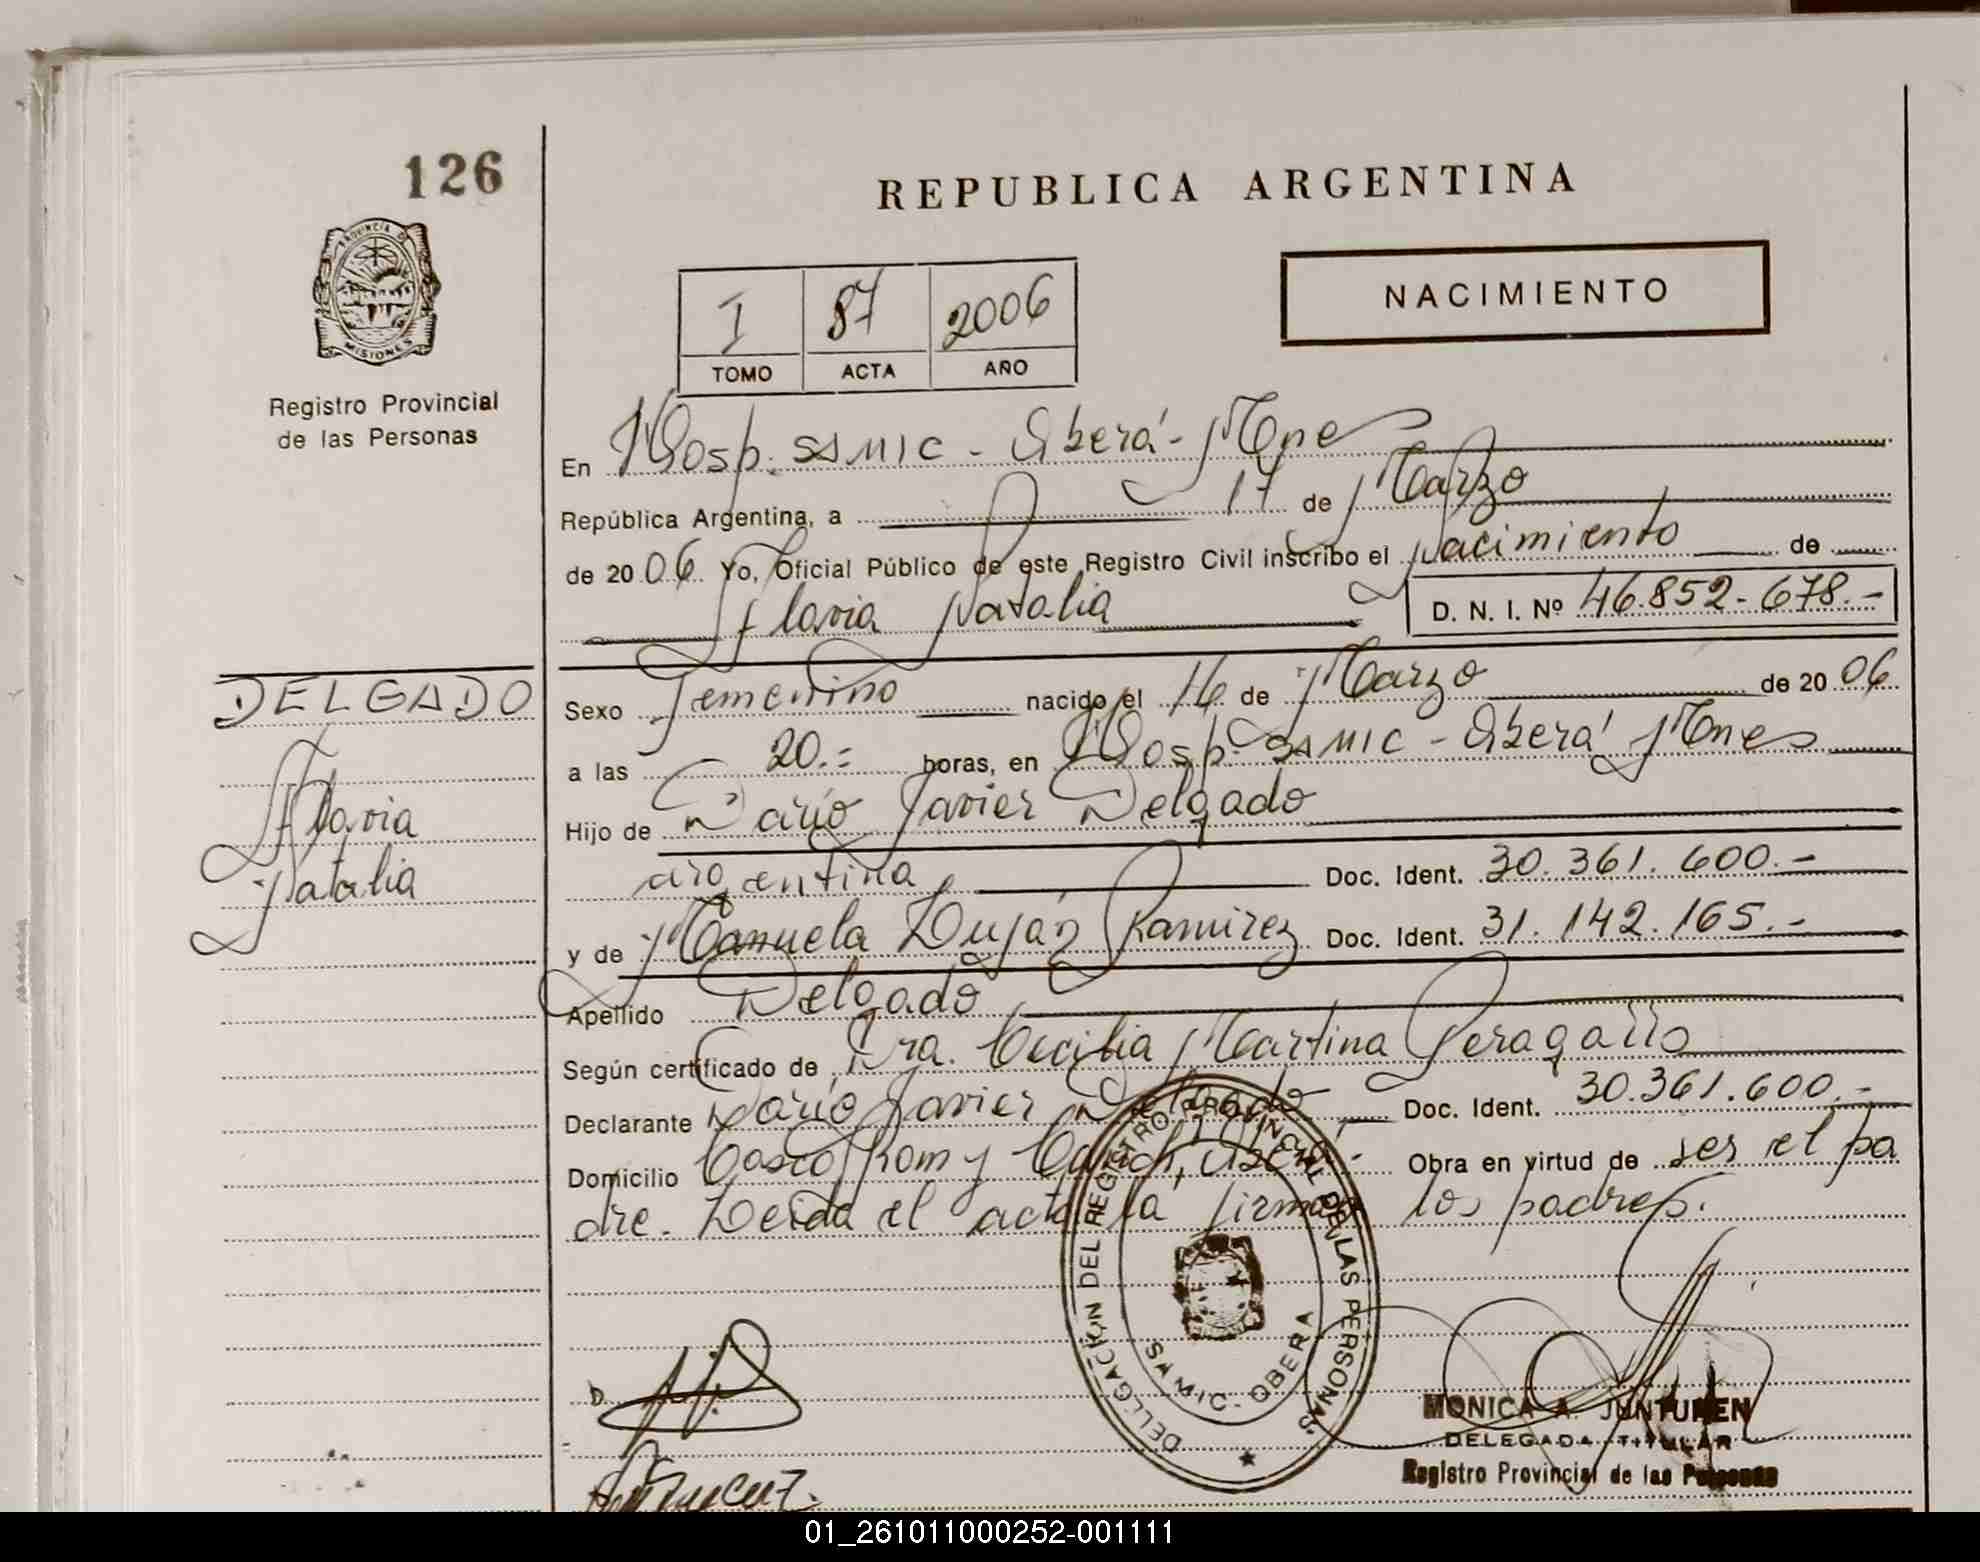 126
REPUBLICA ARGENTINA
PROVINCIA DE
MISIONES
Registro Provincial
de las Personas
I 87 2006
TOMO ACTA AÑO
NACIMIENTO
En Hosp. SAMIC - Oberá - Mnes
República Argentina, a 17 de Marzo
de 20 06 Yo, Oficial Público de este Registro Civil inscribo el Nacimiento de
Flavia Natalia
D. N. I. Nº 46.852.678.-
DELGADO
Flavia
Natalia
Sexo Femenino nacido el 16 de Marzo de 20 06
a las 20.= horas, en Hosp. SAMIC - Oberá Mnes
Hijo de Darío Javier Delgado
argentina Doc. Ident. 30.361.600.-
y de Manuela Luján Ramirez Doc. Ident. 31.142.165.-
Apellido Delgado
Según certificado de Dra. Cecilia Martina Peragallo
Declarante Darío Javier Delgado Doc. Ident. 30.361.600.-
Domicilio Oberá.- Obra en virtud de ser el pa
dre. Leida el acta la firman los padres.
DELEGACION DEL REGISTRO PROVINCIAL DE LAS PERSONAS
SAMIC - OBERA
D.
MONICA A. JUNTUNEN
DELEGADA TITULAR
Registro Provincial de las Personas
01_261011000252-001111